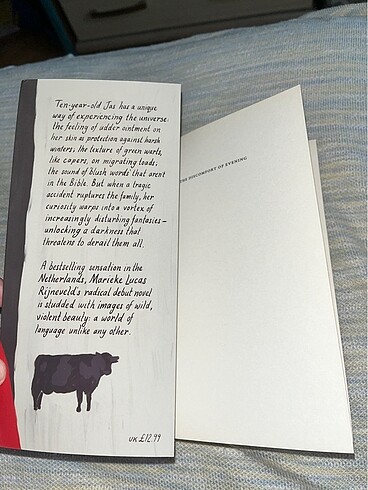 Ten-year-old Jas has a unique
way of experiencing the universe:
the feeling of udder ointment on
her skin as protection against harsh
winters; the texture of green warts,
like capers, on migrating toads;
the sound of blush words that aren't
in the Bible. But when a tragic
accident ruptures the family, her
curiosity warps into a vortex of
increasingly disturbing fantasies –
unlocking a darkness that
threatens to derail them all.
A bestselling sensation in the
Netherlands, Marieke Lucas
Rijneveld's radical debut novel
is studded with images of wild,
violent beauty: a world of
language unlike any other.
UK £12.99
THE DISCOMFORT OF EVENING